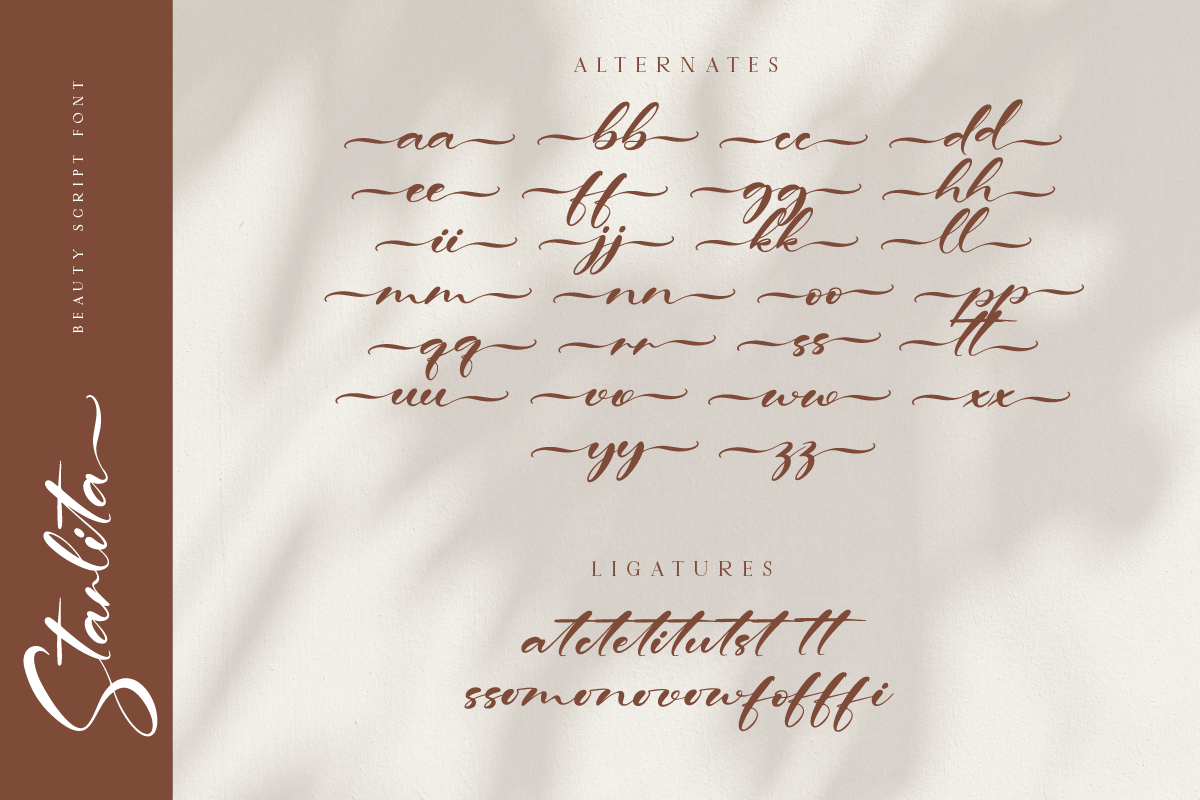 BEAUTY SCRIPT FONT
Starlita
ALTERNATES
aa bb cc dd
ee ff gg hh
ii jj kk ll
mm nn oo pp
qq rr ss tt
uu vv ww xx
yy zz
LIGATURES
atctetitutst tt
ssomonovowfofffi